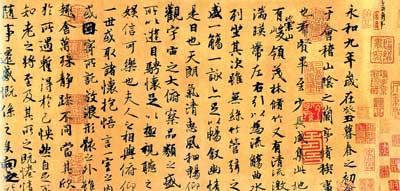 永和九年歲在癸丑暮春之初
于會稽山陰之蘭亭脩稧事
也羣賢畢至少長咸集此地
有崇山峻領茂林脩竹又有清流激
湍暎帶左右引以為流觴曲水
列坐其次雖無絲竹管弦之
盛一觴一詠亦足以暢敘幽情
是日也天朗氣清惠風和暢仰
觀宇宙之大俯察品類之盛
所以遊目騁懷足以極視聽之
娛信可樂也夫人之相與俯仰
一世或取諸懷抱悟言一室之內
或因寄所託放浪形骸之外雖
趣舍萬殊靜躁不同當其欣
於所遇暫得於己快然自足不
知老之將至及其所之既惓情
隨事遷感慨係之矣向之